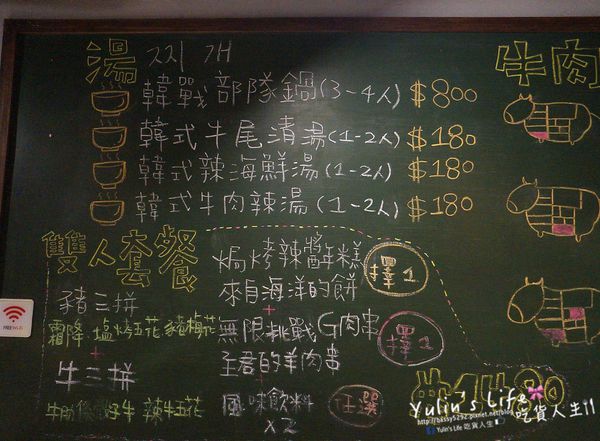 湯 찌개
韓戰部隊鍋(3-4人) $800
韓式牛尾清湯(1-2人) $180
韓式辣海鮮湯(1-2人) $180
韓式牛肉辣湯(1-2人) $180
牛肉
雙人套餐
豬三拼
霜降 塩烤五花 豬梅花
+
牛三拼
牛肋條 好牛 辣牛五花
焗烤辣醬年糕
來自海洋的餅
擇1
+
無限挑戰G肉串
王君的羊肉串
擇1
+
風味飲料
x2
任選
$1480
FREE Wi-Fi
Yulin's Life
吃貨人生!!
http://bessy5292.pixnet.net/blog
Yulin's Life 吃貨人生